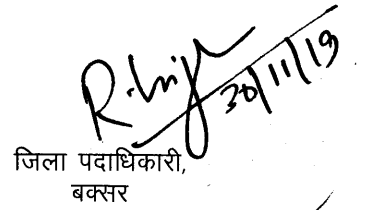 30/11/19
जिला पदाधिकारी,
बक्सर